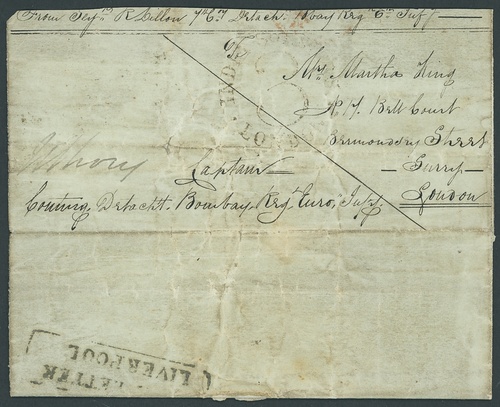 From Serj.t R Dillon 7th Co.y Detach. Bombay Reg.t Inf.y
To
Mrs. Martha King
No 17. Bell Court
Bermondsey Street
Surry
London
Captain
Coming. Detacht. Bombay Reg.t Euro. Inf.y
INDIA
LETTER
LIVERPOOL